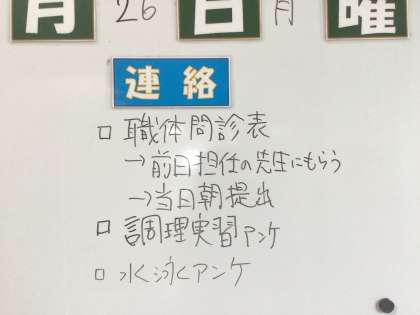 月 26 日 月 曜
連絡
□ 職体問診表
→前日担任の先生にもらう
→当日朝提出
□ 調理実習アンケ
□ 水泳アンケ